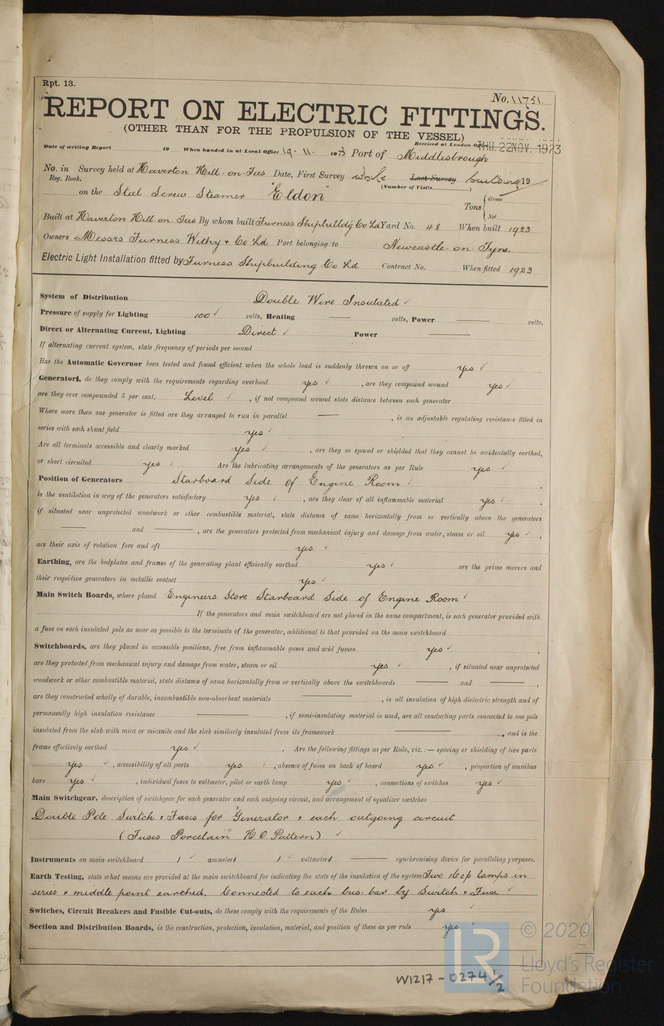 Rpt. 13.
No. 11751
REPORT ON ELECTRIC FITTINGS.
(OTHER THAN FOR THE PROPULSION OF THE VESSEL)
Received at London
THU. 22 NOV. 1923
Date of writing Report 19 When handed in at Local Office 19-11- 1923 Port of Middlesbrough
No. in Survey held at Haverton Hill-on-Tees Date, First Survey while Last Survey building 19
Reg. Book. (Number of Visits
on the Steel Screw Steamer "Eldon" Tons { Gross Net
Built at Haverton Hill-on-Tees By whom built Furness Shipbuilding Co Ld Yard No. 48 When built 1923
Owners Messrs Furness Withy & Co Ld Port belonging to Newcastle-on-Tyne
Electric Light Installation fitted by Furness Shipbuilding Co Ld Contract No. When fitted 1923
System of Distribution Double Wire Insulated ✓
Pressure of supply for Lighting 100 ✓ volts, Heating — volts, Power — volts.
Direct or Alternating Current, Lighting Direct ✓ Power —
If alternating current system, state frequency of periods per second
Has the Automatic Governor been tested and found efficient when the whole load is suddenly thrown on or off yes ✓
Generators, do they comply with the requirements regarding overload yes ✓, are they compound wound yes ✓
are they over compounded 5 per cent. Level ✓, if not compound wound state distance between each generator
Where more than one generator is fitted are they arranged to run in parallel —, is an adjustable regulating resistance fitted in
series with each shunt field yes ✓
Are all terminals accessible and clearly marked yes ✓, are they so spaced or shielded that they cannot be accidentally earthed,
or short circuited yes ✓ Are the lubricating arrangements of the generators as per Rule yes ✓
Position of Generators Starboard Side of Engine Room ✓
is the ventilation in way of the generators satisfactory yes ✓, are they clear of all inflammable material yes ✓,
if situated near unprotected woodwork or other combustible material, state distance of same horizontally from or vertically above the generators
— and —, are the generators protected from mechanical injury and damage from water, steam or oil yes ✓
are their axis of rotation fore and aft yes ✓
Earthing, are the bedplates and frames of the generating plant efficiently earthed yes ✓ are the prime movers and
their respective generators in metallic contact yes ✓
Main Switch Boards, where placed Engineers Store Starboard Side of Engine Room ✓
If the generators and main switchboard are not placed in the same compartment, is each generator provided with
a fuse on each insulated pole as near as possible to the terminals of the generator, additional to that provided on the main switchboard
Switchboards, are they placed in accessible positions, free from inflammable gases and acid fumes yes ✓,
are they protected from mechanical injury and damage from water, steam or oil yes ✓, if situated near unprotected
woodwork or other combustible material, state distance of same horizontally from or vertically above the switchboards — and —,
are they constructed wholly of durable, incombustible non-absorbent materials —, is all insulation of high dielectric strength and of
permanently high insulation resistance —, if semi-insulating material is used, are all conducting parts connected to one pole
insulated from the slab with mica or micanite and the slab similarly insulated from its framework —, and is the
frame effectively earthed yes ✓. Are the following fittings as per Rule, viz.:— spacing or shielding of live parts
yes ✓, accessibility of all parts yes ✓, absence of fuses on back of board yes ✓, proportion of omnibus
bars yes ✓, individual fuses to voltmeter, pilot or earth lamp yes ✓, connections of switches yes ✓
Main Switchgear, description of switchgear for each generator and each outgoing circuit, and arrangement of equalizer switches
Double Pole Switch & Fuses for Generator & each outgoing circuit
(Fuses Porcelain H.O. Pattern) ✓
Instruments on main switchboard 1 ✓ ammeters 1 ✓ voltmeters — synchronising device for paralleling purposes.
Earth Testing, state what means are provided at the main switchboard for indicating the state of the insulation of the system Two 16 c/p lamps in
series & middle point earthed. Connected to each bus-bar by Switch & Fuse ✓
Switches, Circuit Breakers and Fusible Cut-outs, do these comply with the requirements of the Rules yes ✓
Section and Distribution Boards, is the construction, protection, insulation, material, and position of these as per rule yes ✓
W1217-0274 1/2
LR
© 2020
Lloyd's Register
Foundation